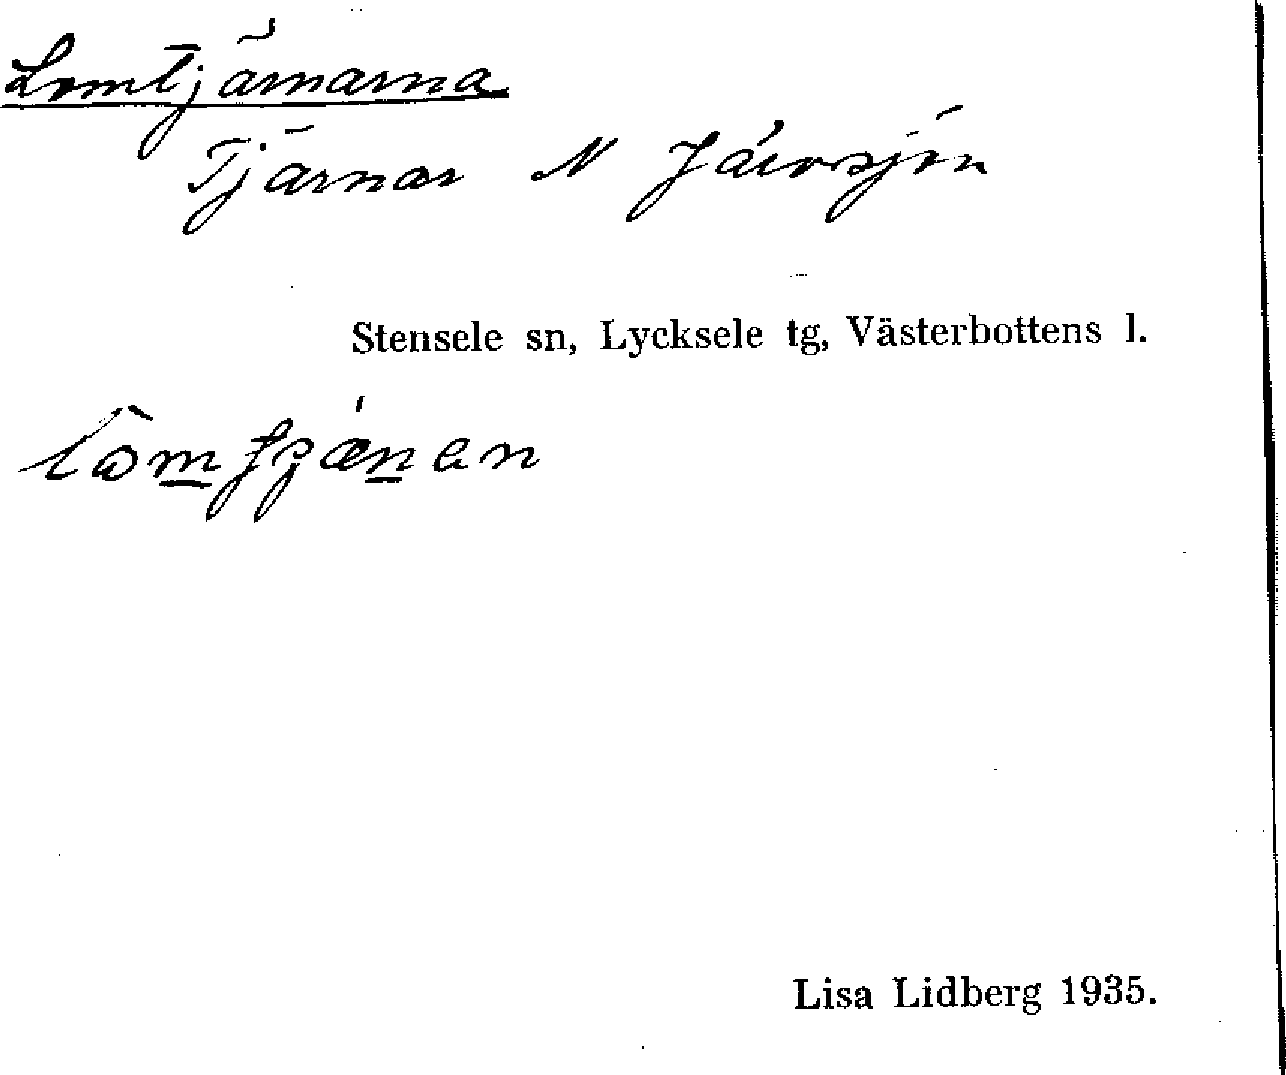 Lomtjärnarna
Tjärnar N Järvsjön
Stensele sn, Lycksele tg, Västerbottens l.
Lisa Lidberg 1935.